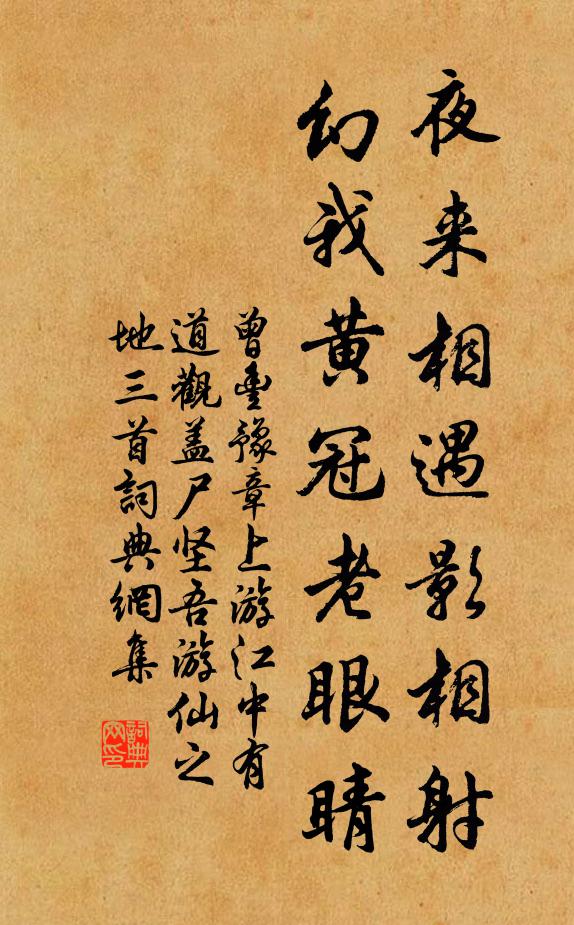 夜来相遇影相射
幻我黄冠老眼睛
曾豐豫章上游江中有
道觀盖尸坚吾游仙之
地三首詞典網集
詞典网印